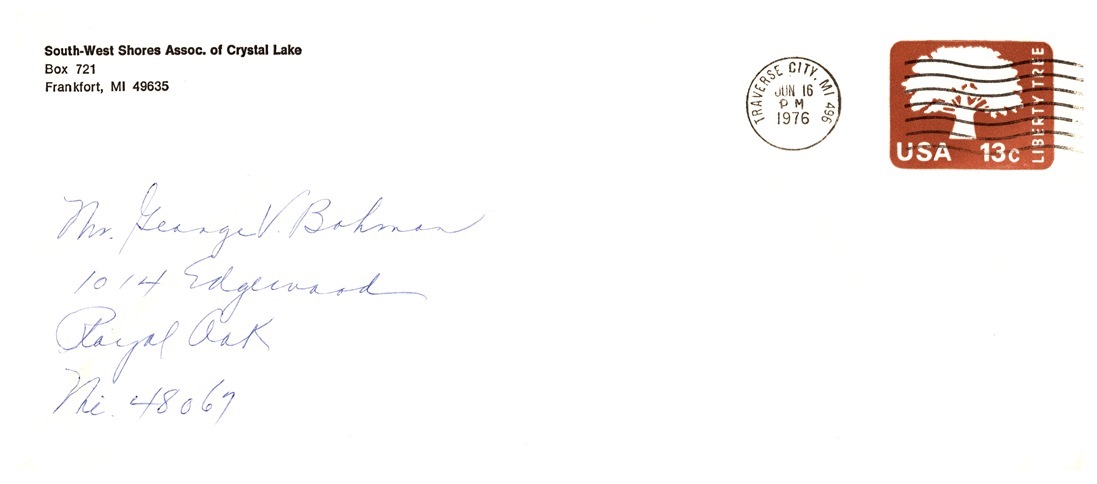 South-West Shores Assoc. of Crystal Lake
Box 721
Frankfort, MI 49635
TRAVERSE CITY, MI 496
JUN 16
PM
1976
LIBERTY TREE
USA 13c
Mr. George V. Bohman
1014 Edgewood
Royal Oak
Mi. 48067